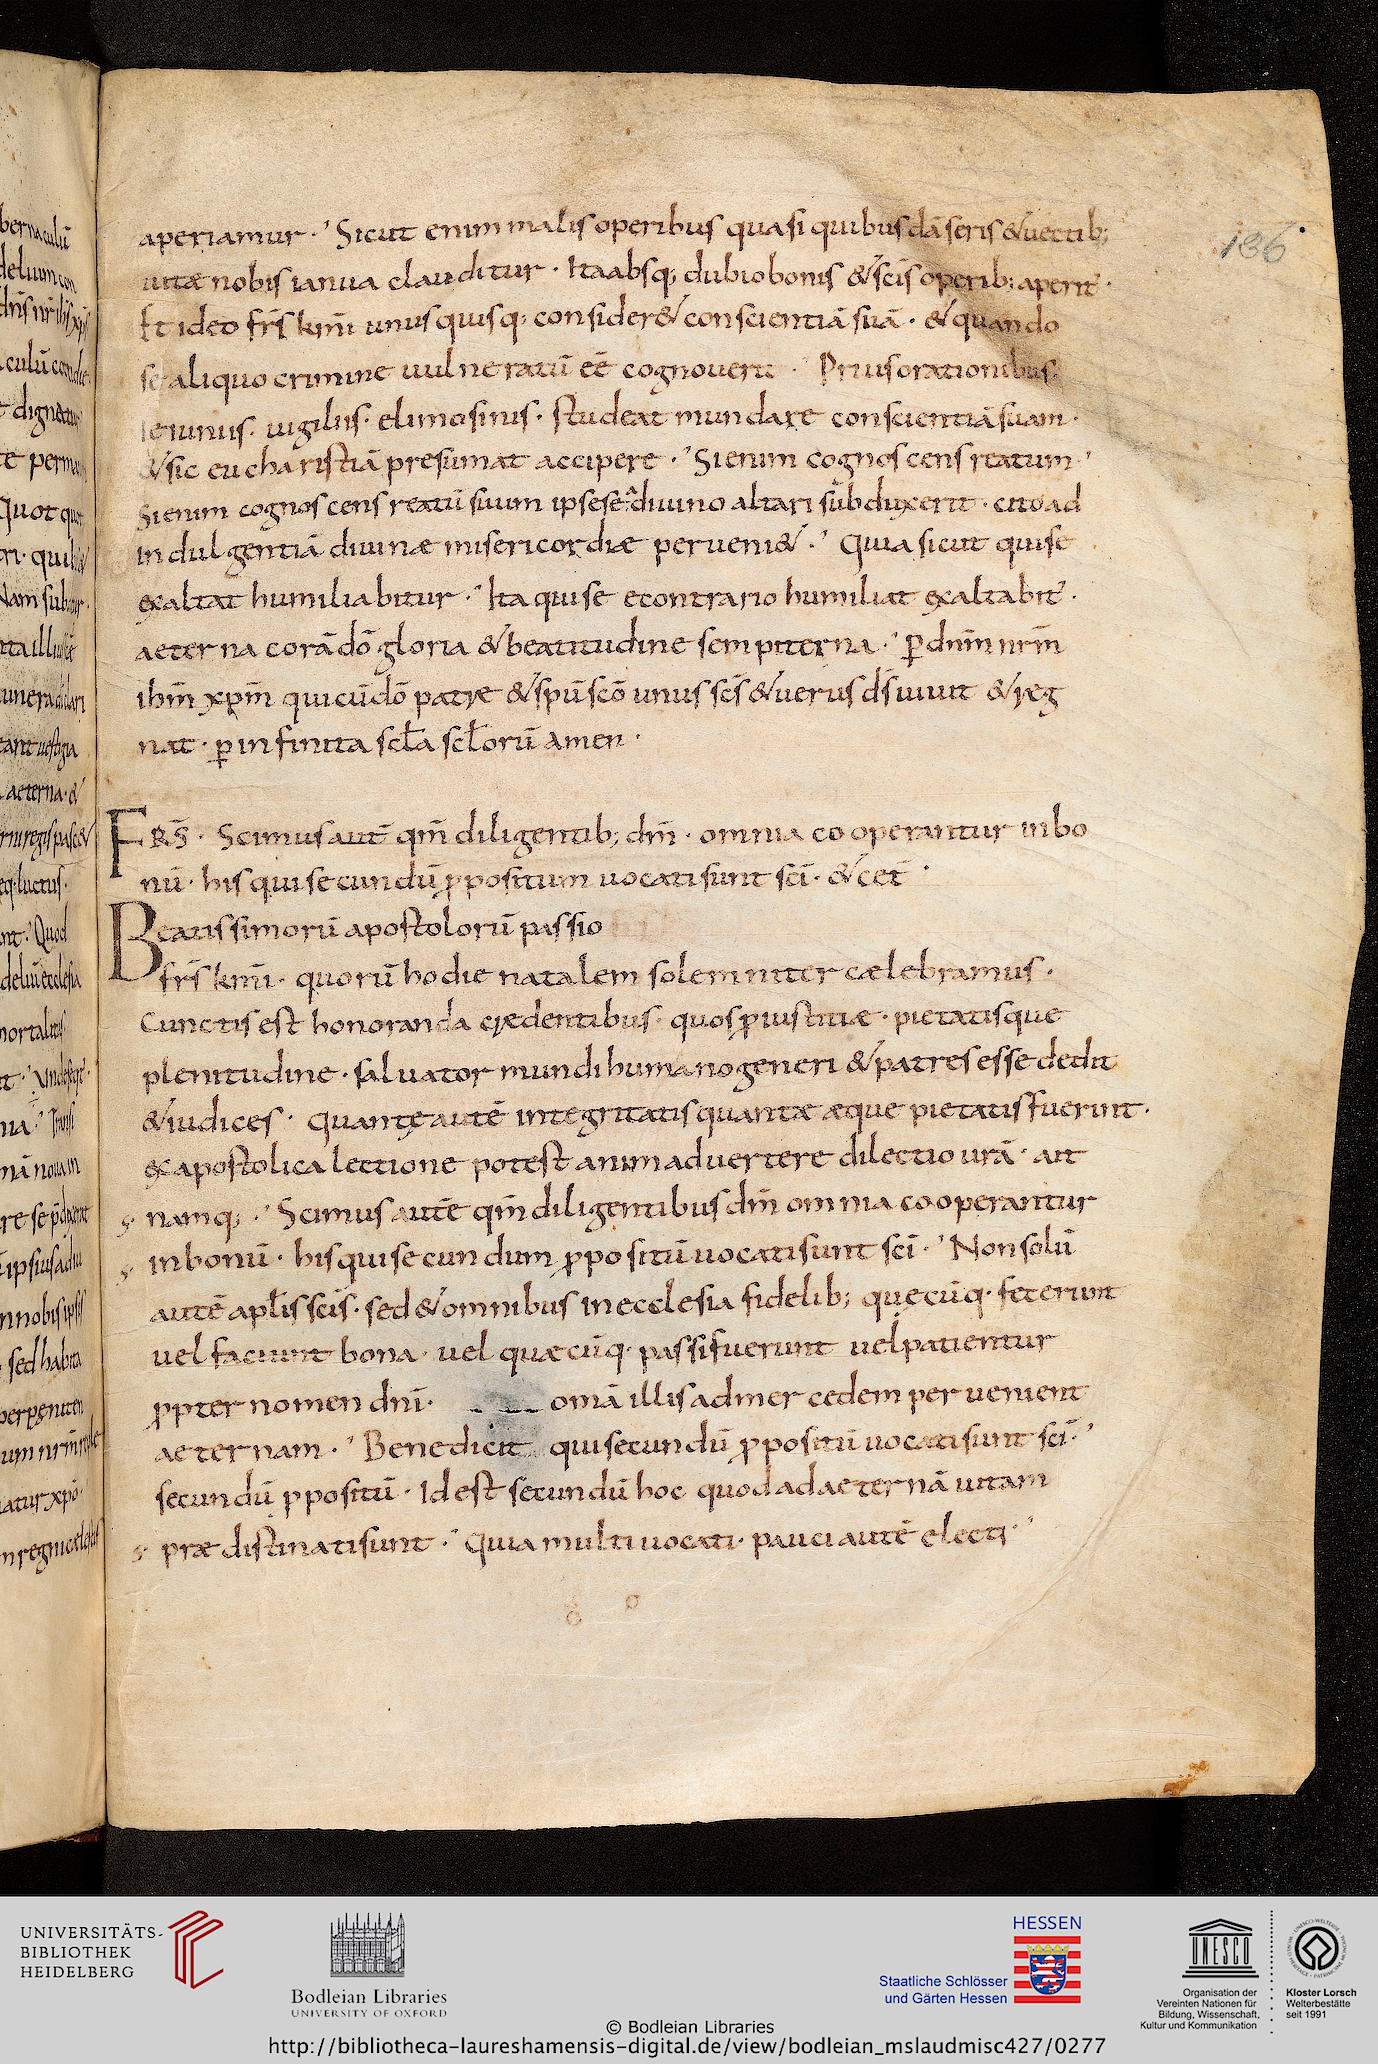 136
aperiamur · Sicut enim malis operibus quasi quibusdā seris & uectib;
uitæ nobis ianua clauditur · Ita absq; dubio bonis & scīs operib; aperit̄ ·
Et ideo fr̄s km̄i unusquisq; consider& conscientiā suā · & quando
se aliquo crimine uulneratū eē cognouerit · Prius orationibus
ieiuniis · uigiliis · elimosinis · studeat mundare conscientiā suam ·
& sic eucharistiā presumat accipere · Si enim cognoscens reatum
Si enim cognoscens reatū suum ipse se a diuino altari subduxerit · cito ad
indulgentiā diuinæ misericordiæ perueni& · Quia sicut qui se
exaltat humiliabitur · Ita qui se econtrario humiliat exaltabit̄ ·
aeterna corā dō gloria & beatitudine sempiterna · ꝑ dnm̄ nrm̄
ihm̄ xpm̄ qui cū dō patre & spū scō unus scs̄ & uerus ds̄ uiuit & reg
nat · ꝑ infinita scl̄a scl̄orū amen ·
FRS̄ · Scimus aut̄ qm̄ diligentib; dm̄ · omnia cooperantur in bo
nū · his qui secundū ꝓpositum uocati sunt scī · & cet̄
Beatissimorū apostolorū passio
fr̄s km̄i · quorū hodie natalem solemniter cælebramus ·
Cunctis est honoranda credentibus · quos ꝓ iustitiæ · pietatisque
plenitudine · saluator mundi humano generi & patres esse dedit
& iudices · Quantę autē integritatis quantæ æque pietatis fuerint ·
ex apostolica lectione potest animaduertere dilectio urā · ait
namq; · Scimus autē qm̄ diligentibus dm̄ omnia cooperantur
in bonū · his qui secundum ꝓpositū uocati sunt scī · Non solū
autē apl̄is scīs · sed & omnibus in ecclesia fidelib; quęcūq · fecerunt
uel faciunt bona · uel quæcūq · passi fuerunt uel patientur
ꝓpter nomen dnī · omā illis ad mercedem peruenient
aeternam · Benedicit qui secundū ꝓpositū uocati sunt scī ·
secundū ꝓpositū · Id est secundū hoc quod ad aeternā uitam
prædistinati sunt · Quia multi uocati · pauci autē electi ·
UNIVERSITÄTS-
BIBLIOTHEK
HEIDELBERG
Bodleian Libraries
UNIVERSITY OF OXFORD
HESSEN
Staatliche Schlösser
und Gärten Hessen
UNESCO
Organisation der
Vereinten Nationen für
Bildung, Wissenschaft,
Kultur und Kommunikation
Kloster Lorsch
Welterbestätte
seit 1991
© Bodleian Libraries
http://bibliotheca-laureshamensis-digital.de/view/bodleian_mslaudmisc427/0277